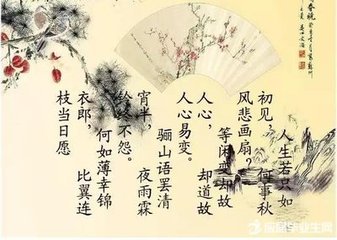 人生若只如
初见，何事秋
风悲画扇？
等闲变却故
人心，却道故
人心易变。
骊山语罢清
宵半，夜雨霖
铃终不怨。
何如薄幸锦
衣郎，比翼连
枝当日愿
应届毕业生网